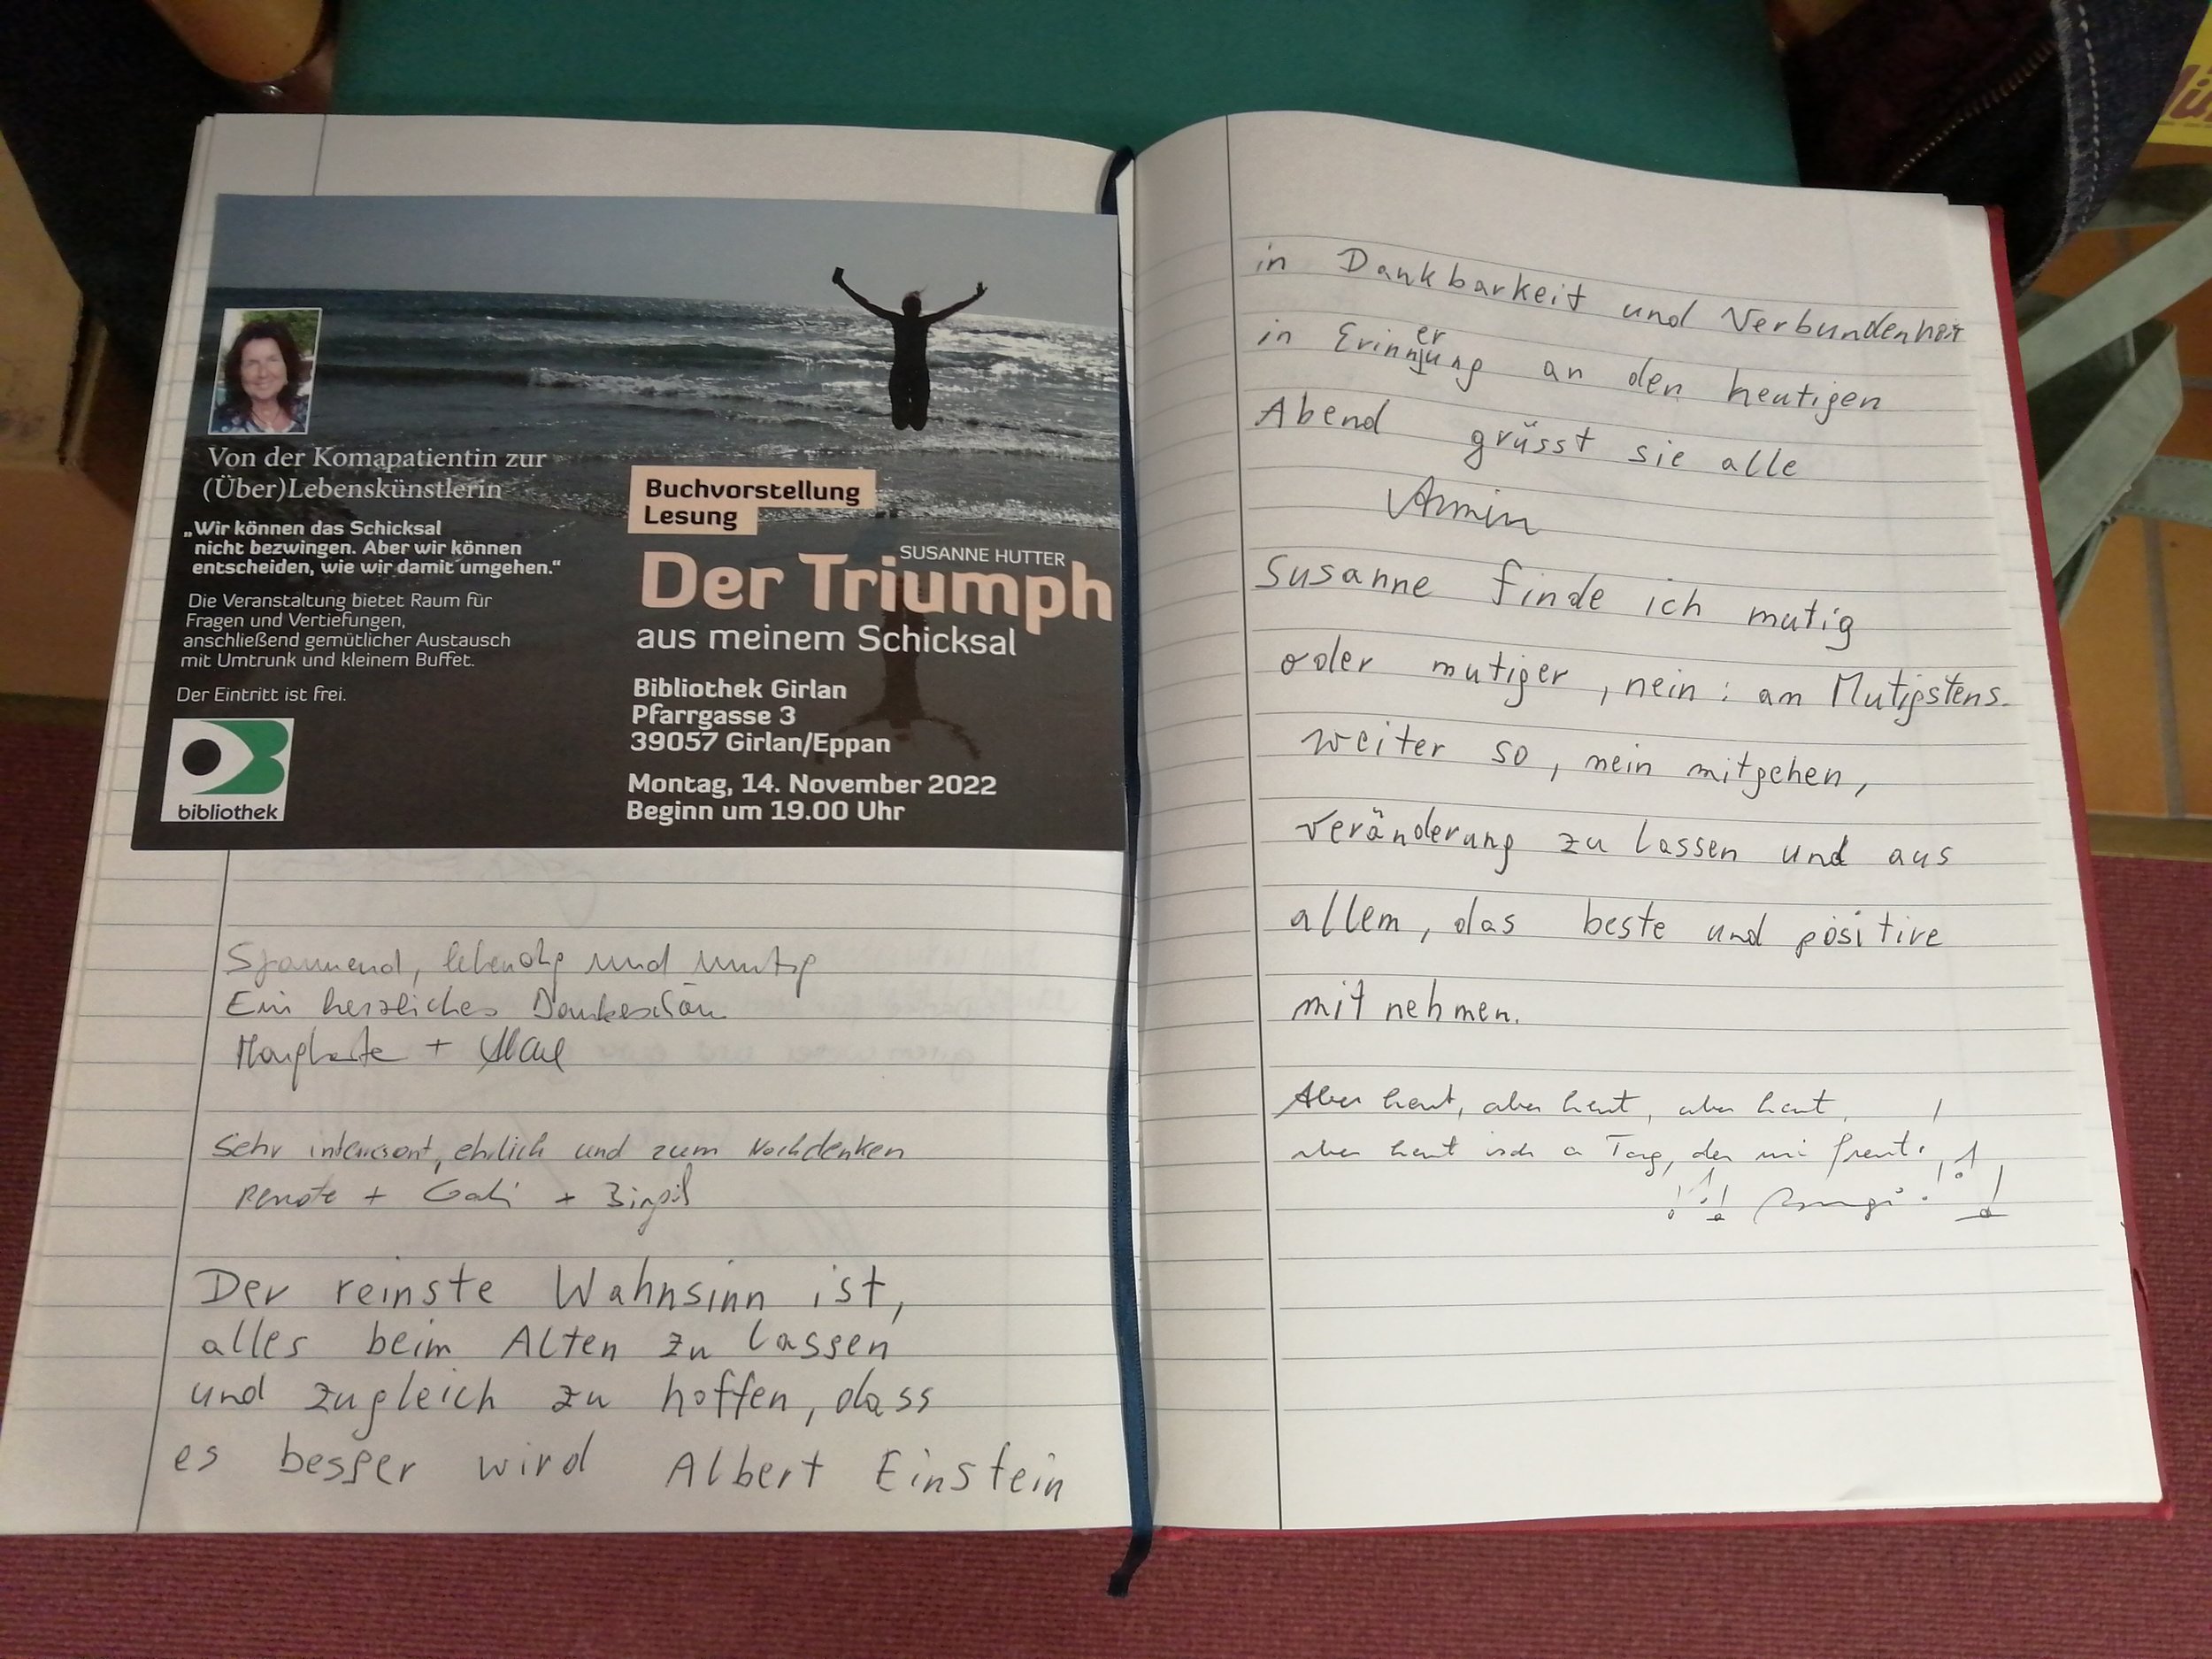 Von der Komapatientin zur
(Über)Lebenskünstlerin
„Wir können das Schicksal
nicht bezwingen. Aber wir können
entscheiden, wie wir damit umgehen.“
Die Veranstaltung bietet Raum für
Fragen und Vertiefungen,
anschließend gemütlicher Austausch
mit Umtrunk und kleinem Buffet.
Der Eintritt ist frei.
bibliothek
Buchvorstellung
Lesung
SUSANNE HUTTER
Der Triumph
aus meinem Schicksal
Bibliothek Girlan
Pfarrgasse 3
39057 Girlan/Eppan
Montag, 14. November 2022
Beginn um 19.00 Uhr
Spannend, lebendig und mutig
Ein herzliches Dankeschön
+
Sehr interessant, ehrlich und zum Nachdenken
Renate + Gabi + Birgit
Der reinste Wahnsinn ist,
alles beim Alten zu lassen
und zugleich zu hoffen, dass
es besser wird Albert Einstein
in Dankbarkeit und Verbundenheit
in Erinnerung an den heutigen
Abend grüsst sie alle
Armin
Susanne finde ich mutig
oder mutiger, nein: am Mutigstens.
weiter so, nein mitgehen,
veränderung zu lassen und aus
allem, das beste und positive
mit nehmen.
Aber heut, aber heut, aber heut,
aber heut isch a Tag, der mi freut!